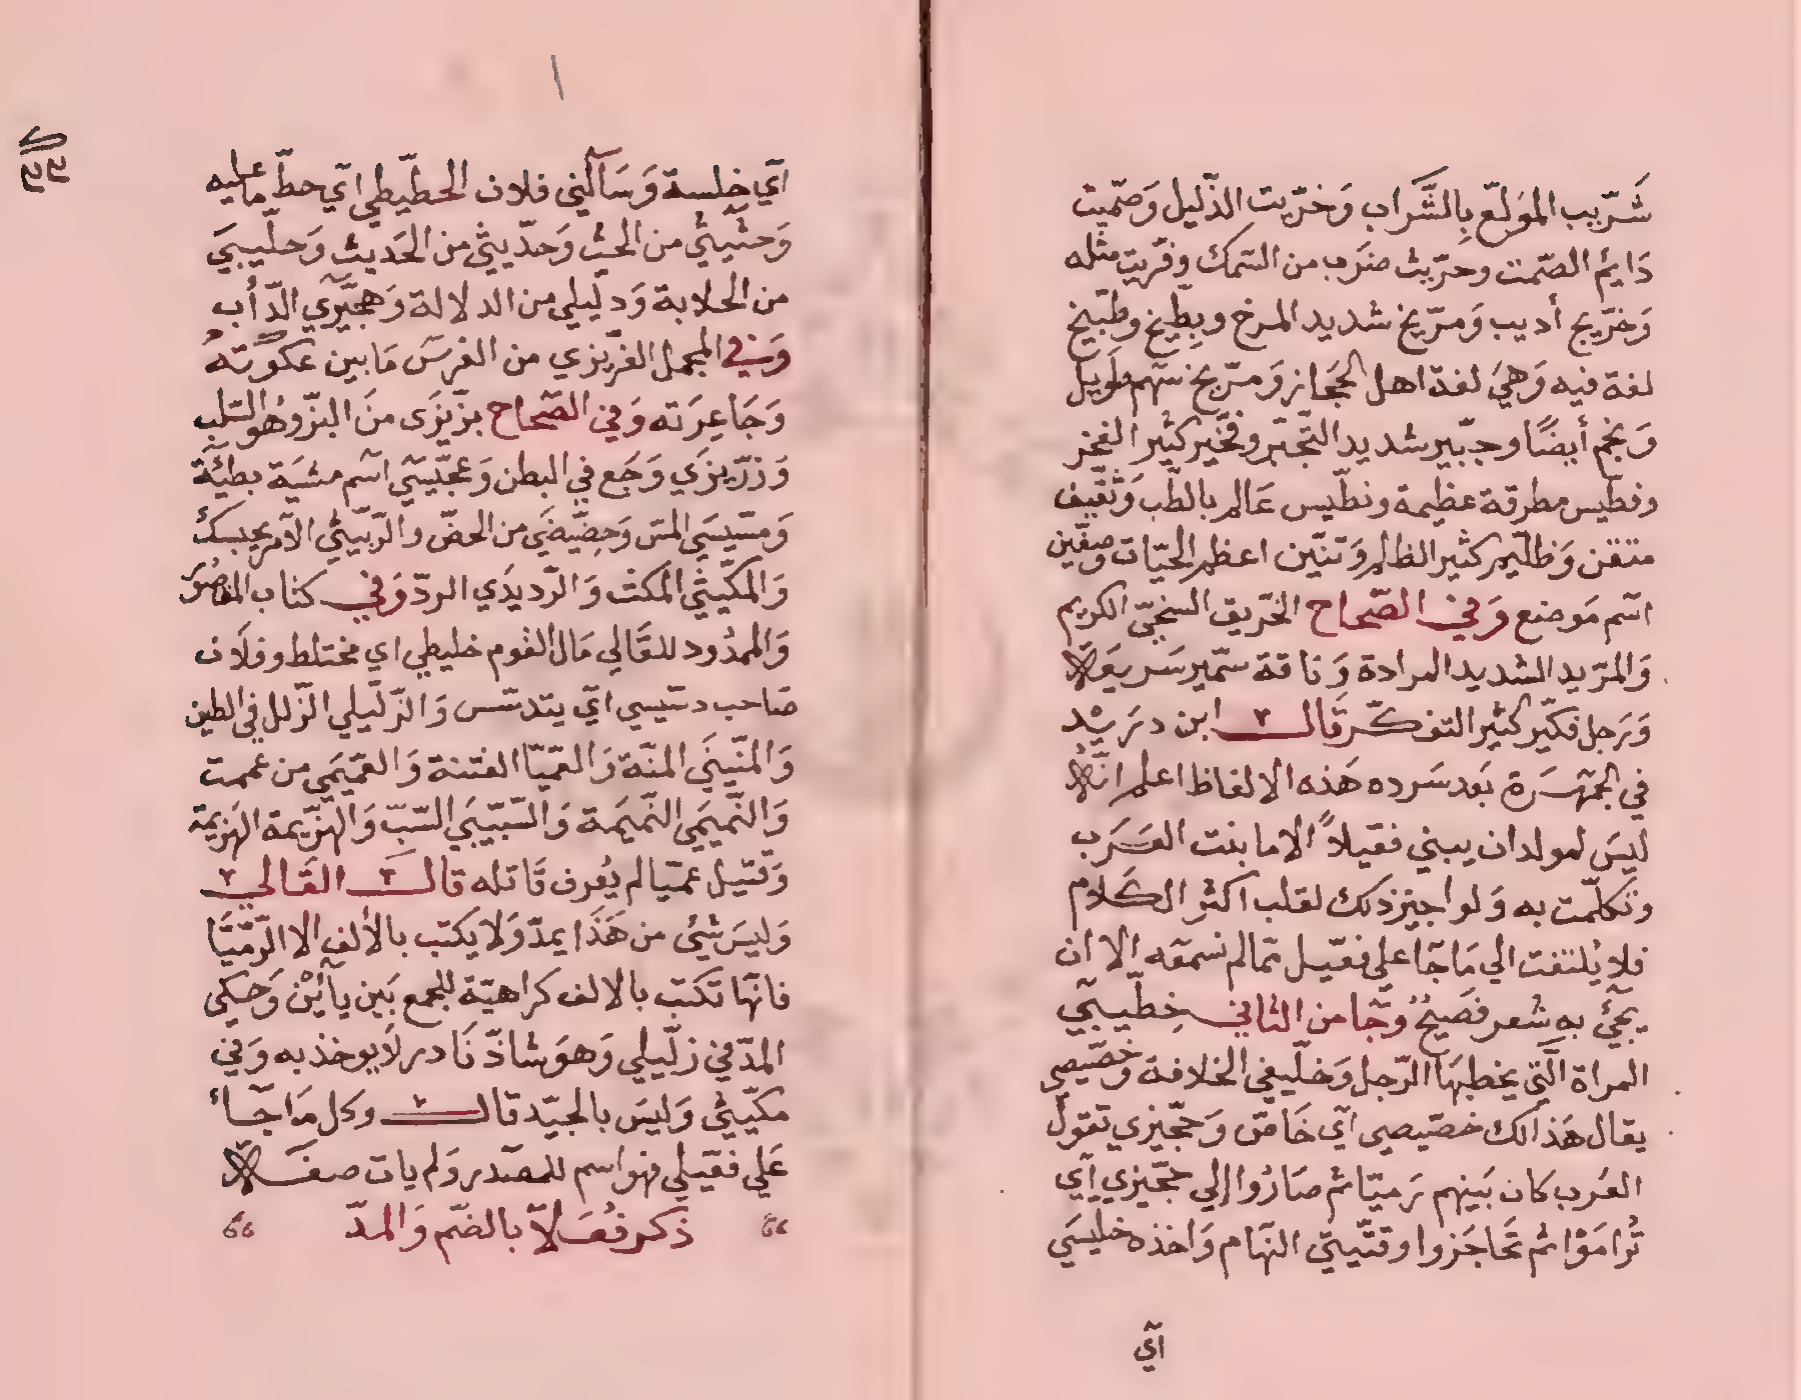 شَرّيب المولع بِالشَّراب وَخرّيت الدّليل وَصمّيت
دَايم الصّمت وحرّيث ضرَب من السّمك وقرّيت مثله
وَخرّيج أديب وَمرّيخ شديد المرخ وبِطّيخ وطبّيخ
لغة فيه وَهيَ لغة اهل الحجَاز وَمرّيخ سَهم طَويل
وَنجم أيضًا وجبّير شديد التّجبّر وفخّير كثير الفخر
وفطّيس مطرقة عظيمة ونطّيس عَالم بالطّب وَثقّيف
متقن وَظلّيم كثير الظلم وَتنّين اعظم الحيّات وصفّين
اسَم مَوضع وَفي الصّحاح الخرّيق السّخيّ الكريم
وَالمرّيد الشديد المرادة وَناقة سمّير سَريعَة
وَرَجل فكّير كثير التفكّر قَال ابن دريْد
في الجمهَرة بَعد سَرده هَذه الالفاظ اعلم انّهُ
ليسَ لمولد ان يبني فعّيلاً الا ما بنت العَرَب
وتكلّمت به وَلو اجيز ذلك لقلب اكثر الكَلام
فلا يُلتفت الي مَا جَا علي فعّيل ممّا لم نسمعه الا ان
يجيَ بهِ شِعر فصَيح وَجَا من الثاني خِطّيبَي
المراة الّتي يخطبهَا الرّجل وَخلّيفي الخلافة وَخصّيصي
يقال هَذا لك خصّيصي اي خَاص وَحجّيزي تقول
العَرب كان بَينهم رَمّيّا ثم صَارُوا إلي حجّيزي اي
تُرامَوْا ثم تحَاجَزوا وقتّيتي النّمام وَاخذه خلّيسَي
اي
اي خلسة وَسَالني فلان الحطّيطي اي حطّ مَا عليه
وَحثّيثي من الحث وَحدّيثي من الحَديث وَخلّيبَي
من الخلابة وَدلّيلي من الدلالة وَهجّيرَي الدّأب
وَفي المجمل الغرّيزي من الفرسَ مَا بين عكوَتهُ
وَجَاعِرَته وَفي الصّحاح بزّيزَى منَ البزّ وهُو السّلب
وَزرّيزَي وَجَع في البطن وَعجّيسَي اسم مشيَة بطيئَة
وَمسّيسَي المسّ وَحِضّيضَي من الحضّ والرّبّيثي الامر يحبسك
وَالمكّيثي المكث وَالرّديدَي الردّ وَفي كتاب المقصُور
وَالممدُود للقَالي مَال القوم خلّيطي اي مختلط وفلَان
صَاحب دسّيسي اي يتدسّس وَالزلّيلي الزّلل في الطين
وَالمنّينَي المنّة وَالعمّيّا الفتنة وَالعمّيمَي من عممت
وَالنّميمَي النّميَمة وَالسّبّيبَي السّبّ وَالهزّيمة الهَزيمة
وَقتيل عمّيّا لم يُعرف قَاتله قال القَالي
وَليسَ شئ من هَذَا يمدّ وَلا يكتب بالألف الا الرّمّيّا
فانّها تكتب بالالف كراهيّة للجمع بَين يآئين وَحكي
المدّ في زلّيلي وَهوَ شاذّ نَادر لَا يوخذ به وَفي
مكّيثي وَليسَ بالجيّد قال وَكل مَا جَآء
عَلي فعّيلي فهو اسم للمصَدر وَلم يات صفَة
ذكر فُعَلَا بالضّم وَالمدّ